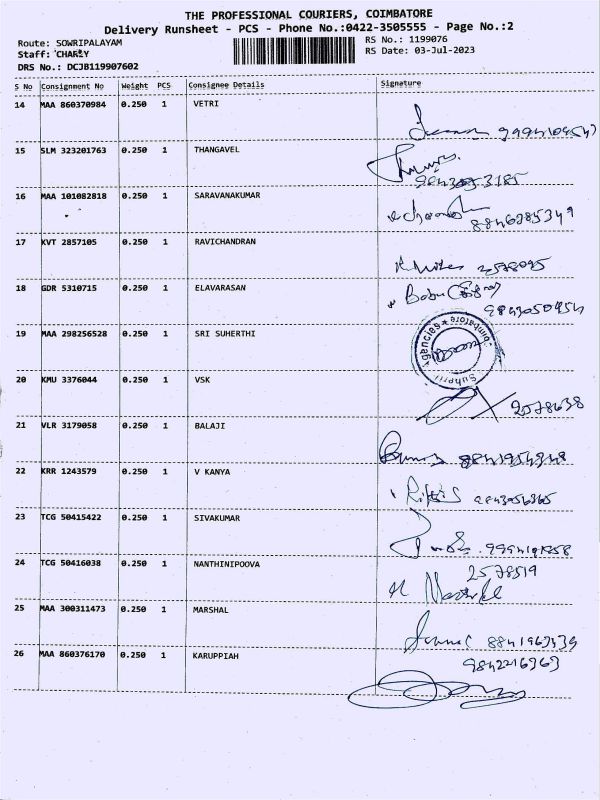 THE PROFESSIONAL COURIERS, COIMBATORE
Delivery Runsheet - PCS - Phone No.:0422-3505555 - Page No.:2
Route: SOWRIPALAYAM RS No.: 1199076
Staff: CHARLY RS Date: 03-Jul-2023
DRS No.: DCJB119907602
S No Consignment No Weight PCS Consignee Details Signature
14 MAA 860370984 0.250 1 VETRI
15 SLM 323201763 0.250 1 THANGAVEL
16 MAA 101082818 0.250 1 SARAVANAKUMAR
8846285349
17 KVT 2857105 0.250 1 RAVICHANDRAN
2578095
18 GDR 5310715 0.250 1 ELAVARASAN
Babu
19 MAA 298256528 0.250 1 SRI SUHERTHI
20 KMU 3376044 0.250 1 VSK
2578638
21 VLR 3179058 0.250 1 BALAJI
22 KRR 1243579 0.250 1 V KANYA
23 TCG 50415422 0.250 1 SIVAKUMAR
24 TCG 50416038 0.250 1 NANTHINIPOOVA
2578519
25 MAA 300311473 0.250 1 MARSHAL
26 MAA 860376170 0.250 1 KARUPPIAH
9842216363